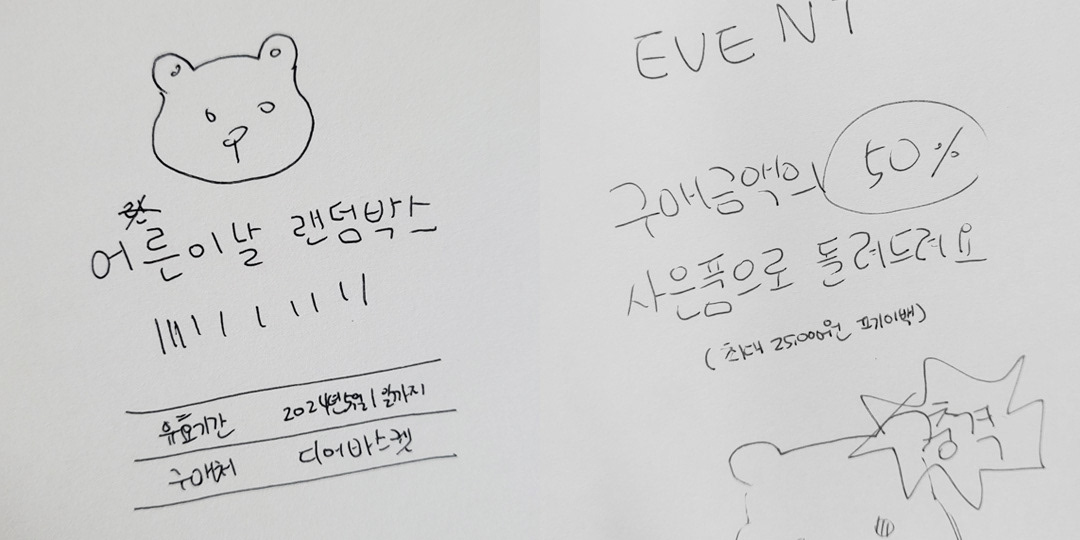 어른이날 랜덤박스
유효기간 2024년 5월 1일까지
구매처 디어바스켓
EVENT
구매금액의 50%
사은품으로 돌려드려요
(최대 25,000원 페이백)
충격